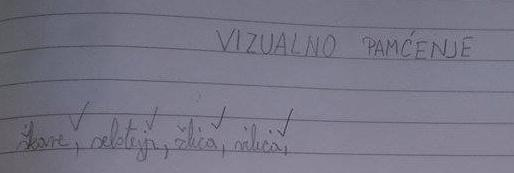 VIZUALNO PAMĆENJE
škare, selotejp, žlica, vilica,